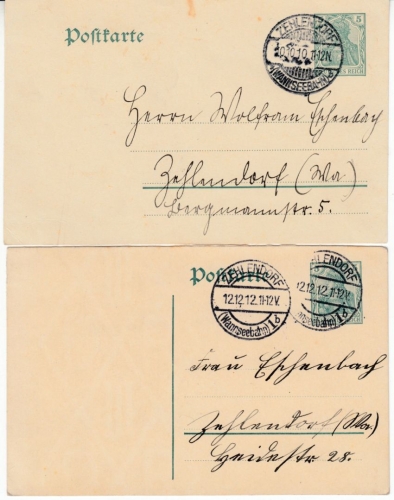 Postkarte
ZEHLENDORF
10.10.10.11-12N.
(WANNSEEBAHN)
5
REICH
Herrn Wolfram Eschenbach
Zehlendorf (Wa)
Bergmannstr. 5.
Postkarte
ZEHLENDORF
12.12.12.11-12V.
(Wannseebahn) 1
ZEHLENDORF
12.12.12.11-12V.
nnseebahn) 1
Frau Eschenbach
Zehlendorf (Wa.)
Heidestr 28.